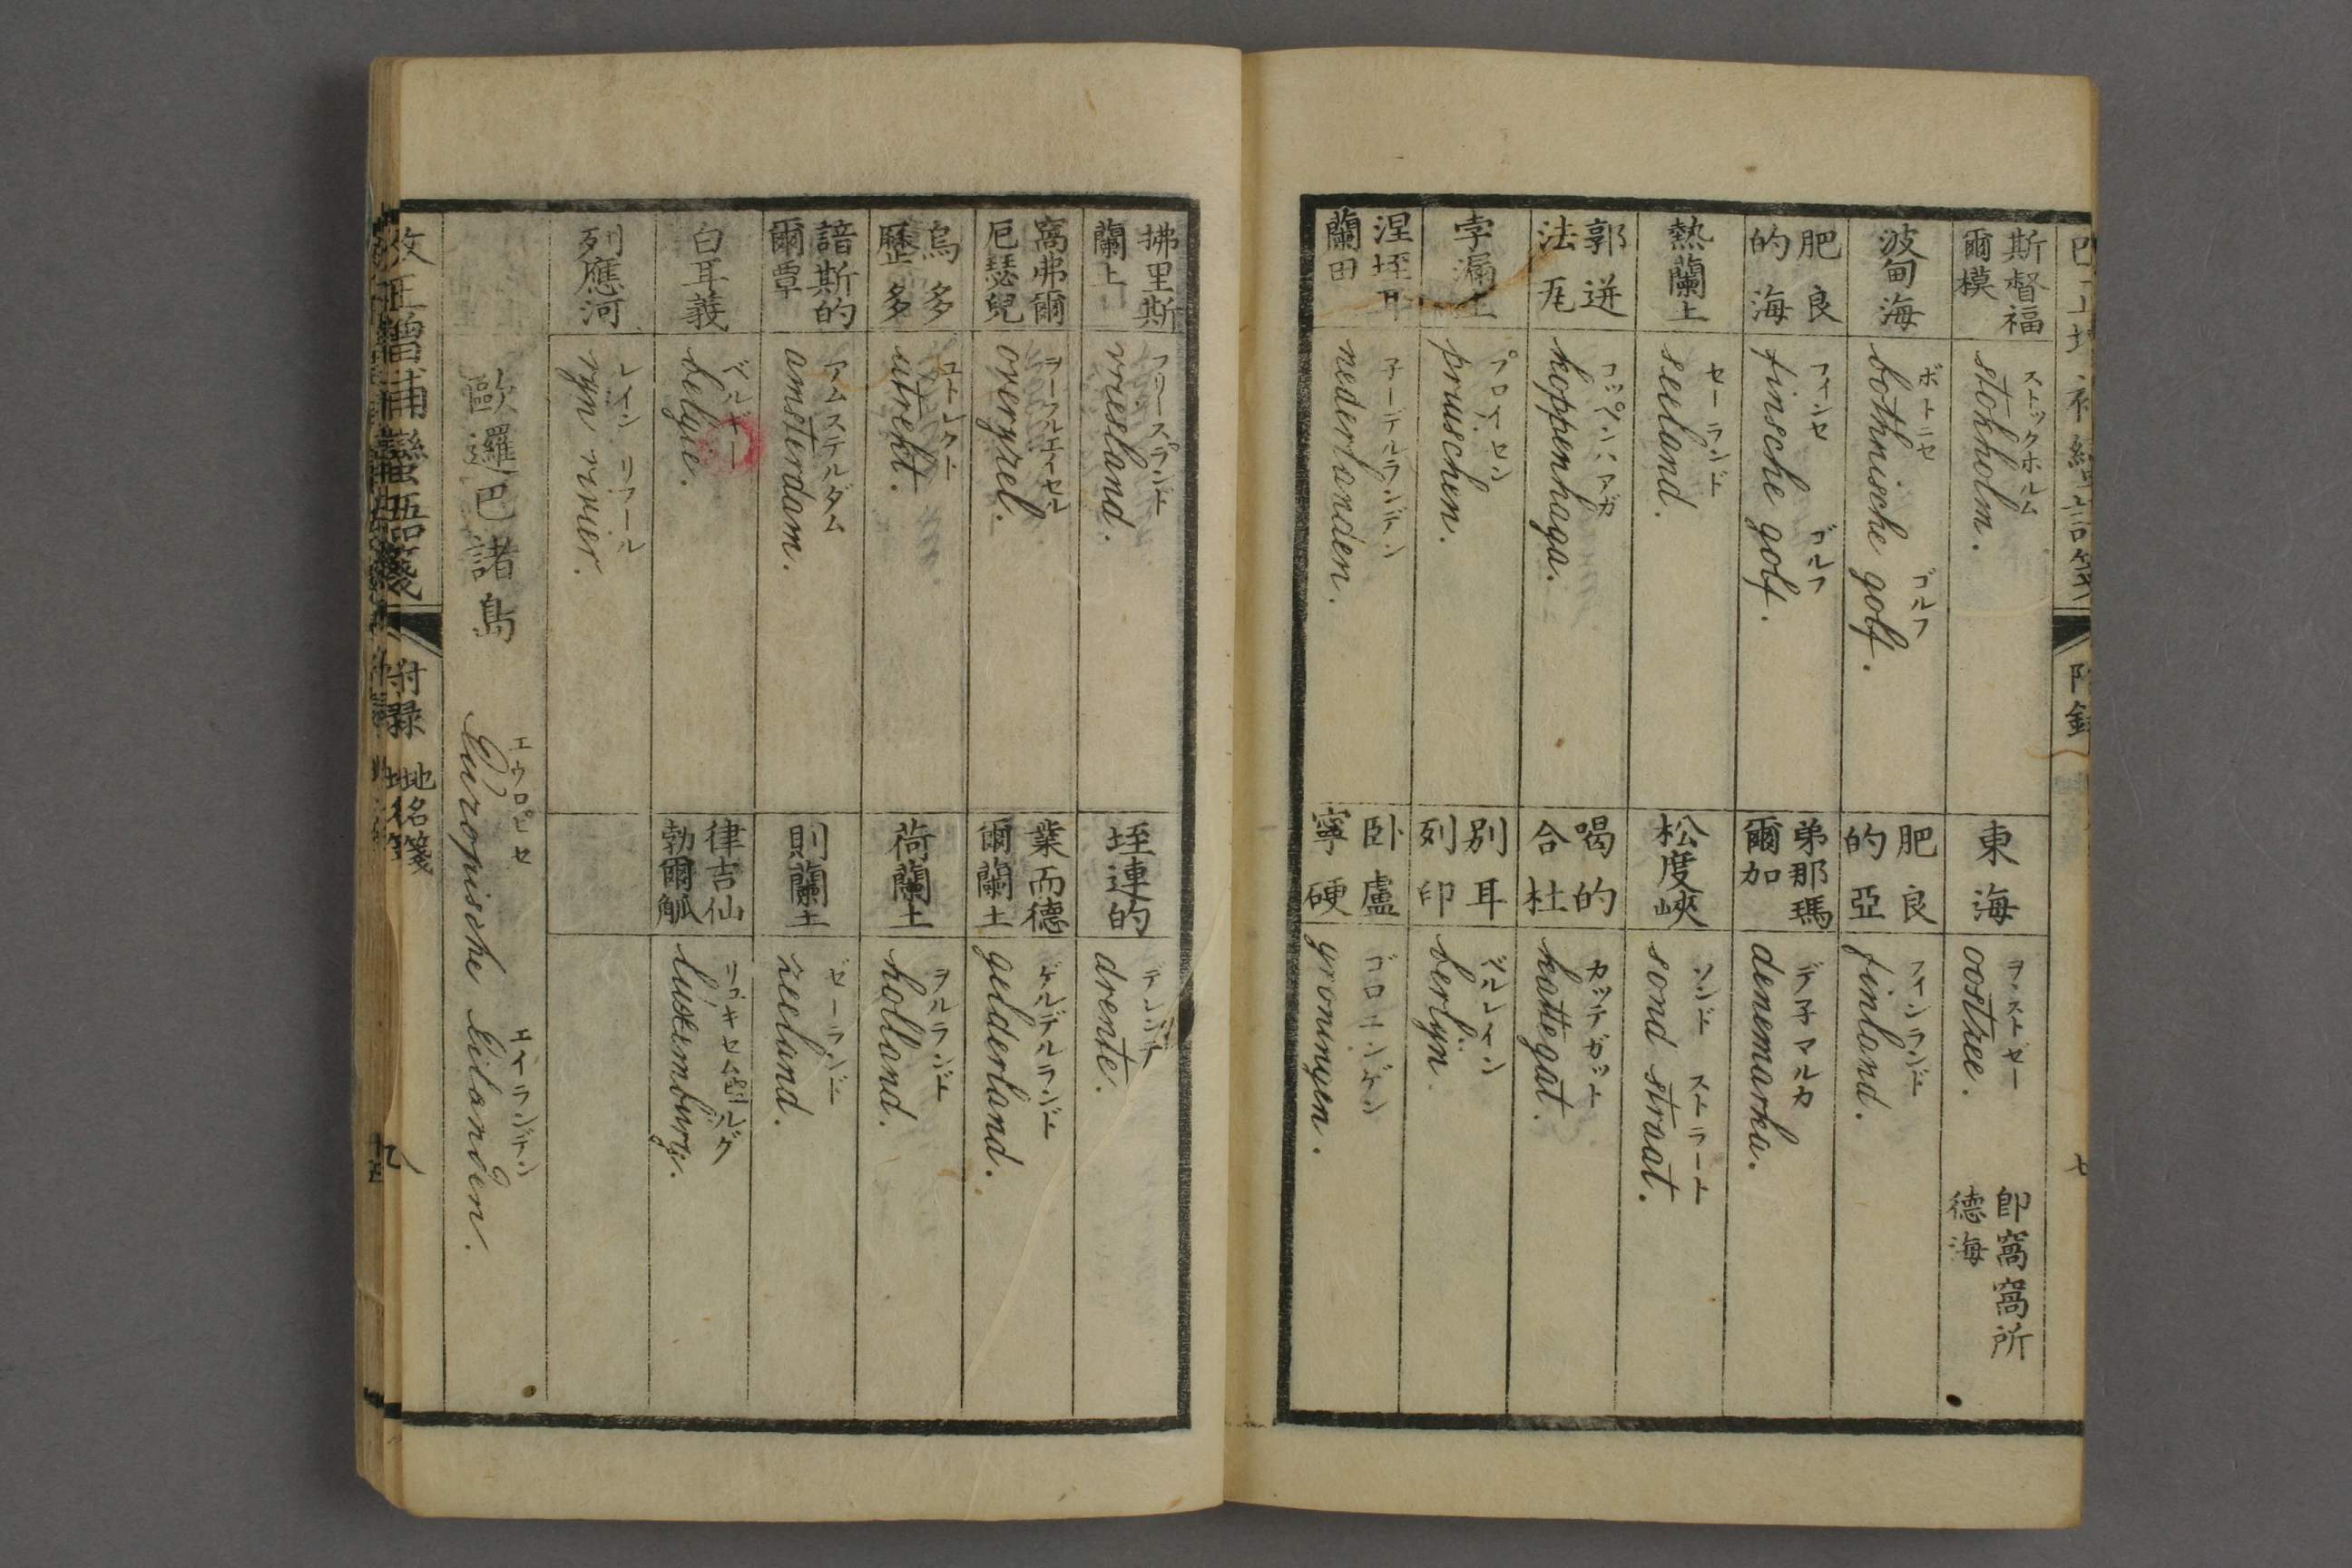 斯督福
爾模
ストックホルム
stokholm.
東海
ヲヽストゼー
oostzee.
即窩窩所
德海
波甸海
ボトニセ ゴルフ
bothnische golf.
肥良
的亞
フインランド
finland.
肥良
的海
フインセ ゴルフ
finsche golf.
弟那瑪
爾加
デ子マルカ
denemarka.
熱蘭土
セーランド
seeland.
松度峽
ソンド ストラート
sond straat.
郭迸
法㐳
コッペンハアガ
koppenhaga.
喝的
合杜
カッテガット
kattegat.
孛漏土
プロイセン
pruischen.
別耳
列印
ベルレイン
berlyn.
涅垤耳
蘭田
子ーデルランデン
nederlanden.
臥盧
寧硬
ゴロニンゲン
groningen.
拂里斯
蘭土
フリースランド
vriesland.
垤連的
デレンテ
drente.
窩弗爾
厄瑟兒
ヲーフルエイセル
overyzel.
業而德
爾蘭土
ゲルデルランド
gelderland.
烏多
歷多
ユトレクト
utrekt.
荷蘭土
ヲルランド
holland.
諳斯的
爾覃
アムステルダム
amsterdam.
則蘭土
ゼーランド
zeeland.
白耳義
ベルギー
belgie.
律吉仙
勃爾觚
luxemburg.
列應河
レイン リフール
ryn rivier.
歐邏巴諸島
エウロピセ エイランデン
Europische Eilanden.
改正增補蠻語箋
附録
地名箋